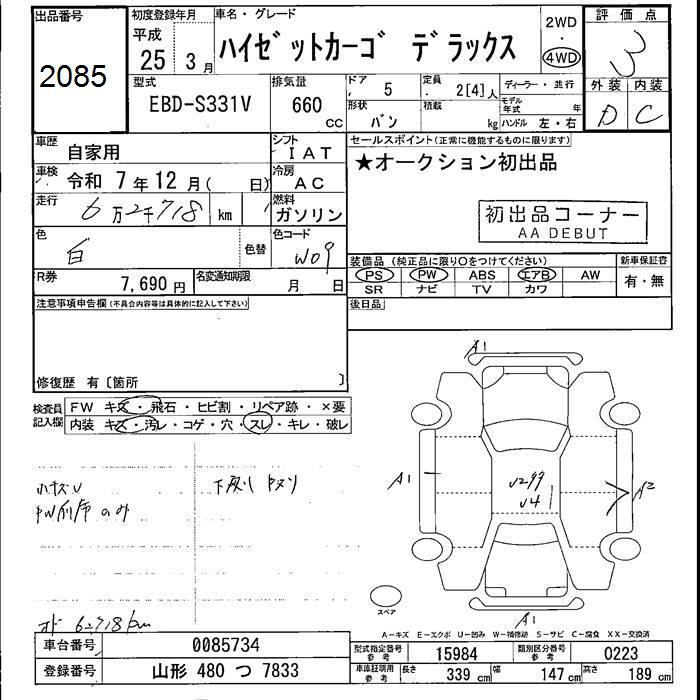 出品番号
2085
初度登録年月
平成
25年 3月
車名・グレード
ハイゼットカーゴ デラックス
2WD
・
4WD
評価点
3
型式
EBD-S331V
排気量
660
CC
ドア
5
定員
2[4]人
形状
バン
積載
kg
ディーラー・並行
モデル年式
年
ハンドル 左・右
外装 内装
D C
車歴
自家用
シフト
IAT
セールスポイント(正常に機能するものに限ります)
★オークション初出品
車検
令和 7年12月( 日)
冷房
AC
走行
6万2千718 km
燃料
ガソリン
初出品コーナー
AA DEBUT
色
白
色替
色コード
W09
装備品(純正品に限り○をつけてください)
新車保証書
PS PW ABS エアB AW
有・無
SR ナビ TV カワ
R券
7,690円
名変通知期限
月 日
後日品
注意事項申告欄(不具合内容等は具体的に記入して下さい)
修復歴 有〔箇所 〕
検査員記入欄
FW キズ・飛石・ヒビ割・リペア跡・×要
内装 キズ・汚レ・コゲ・穴・スレ・キレ・破レ
小キズU
PW前席のみ
下廻り
オド 62718km
A1
A1
U299
U4
A2
スペア
A1
A-キズ E-エクボ U-凹み W-補修跡 S-サビ C-腐食 XX-交換済
車台番号
0085734
型式指定番号
参考
15984
類別区分番号
参考
0223
登録番号
山形 480 つ 7833
車庫証明用
参考
長さ 339 cm 幅 147 cm 高さ 189 cm